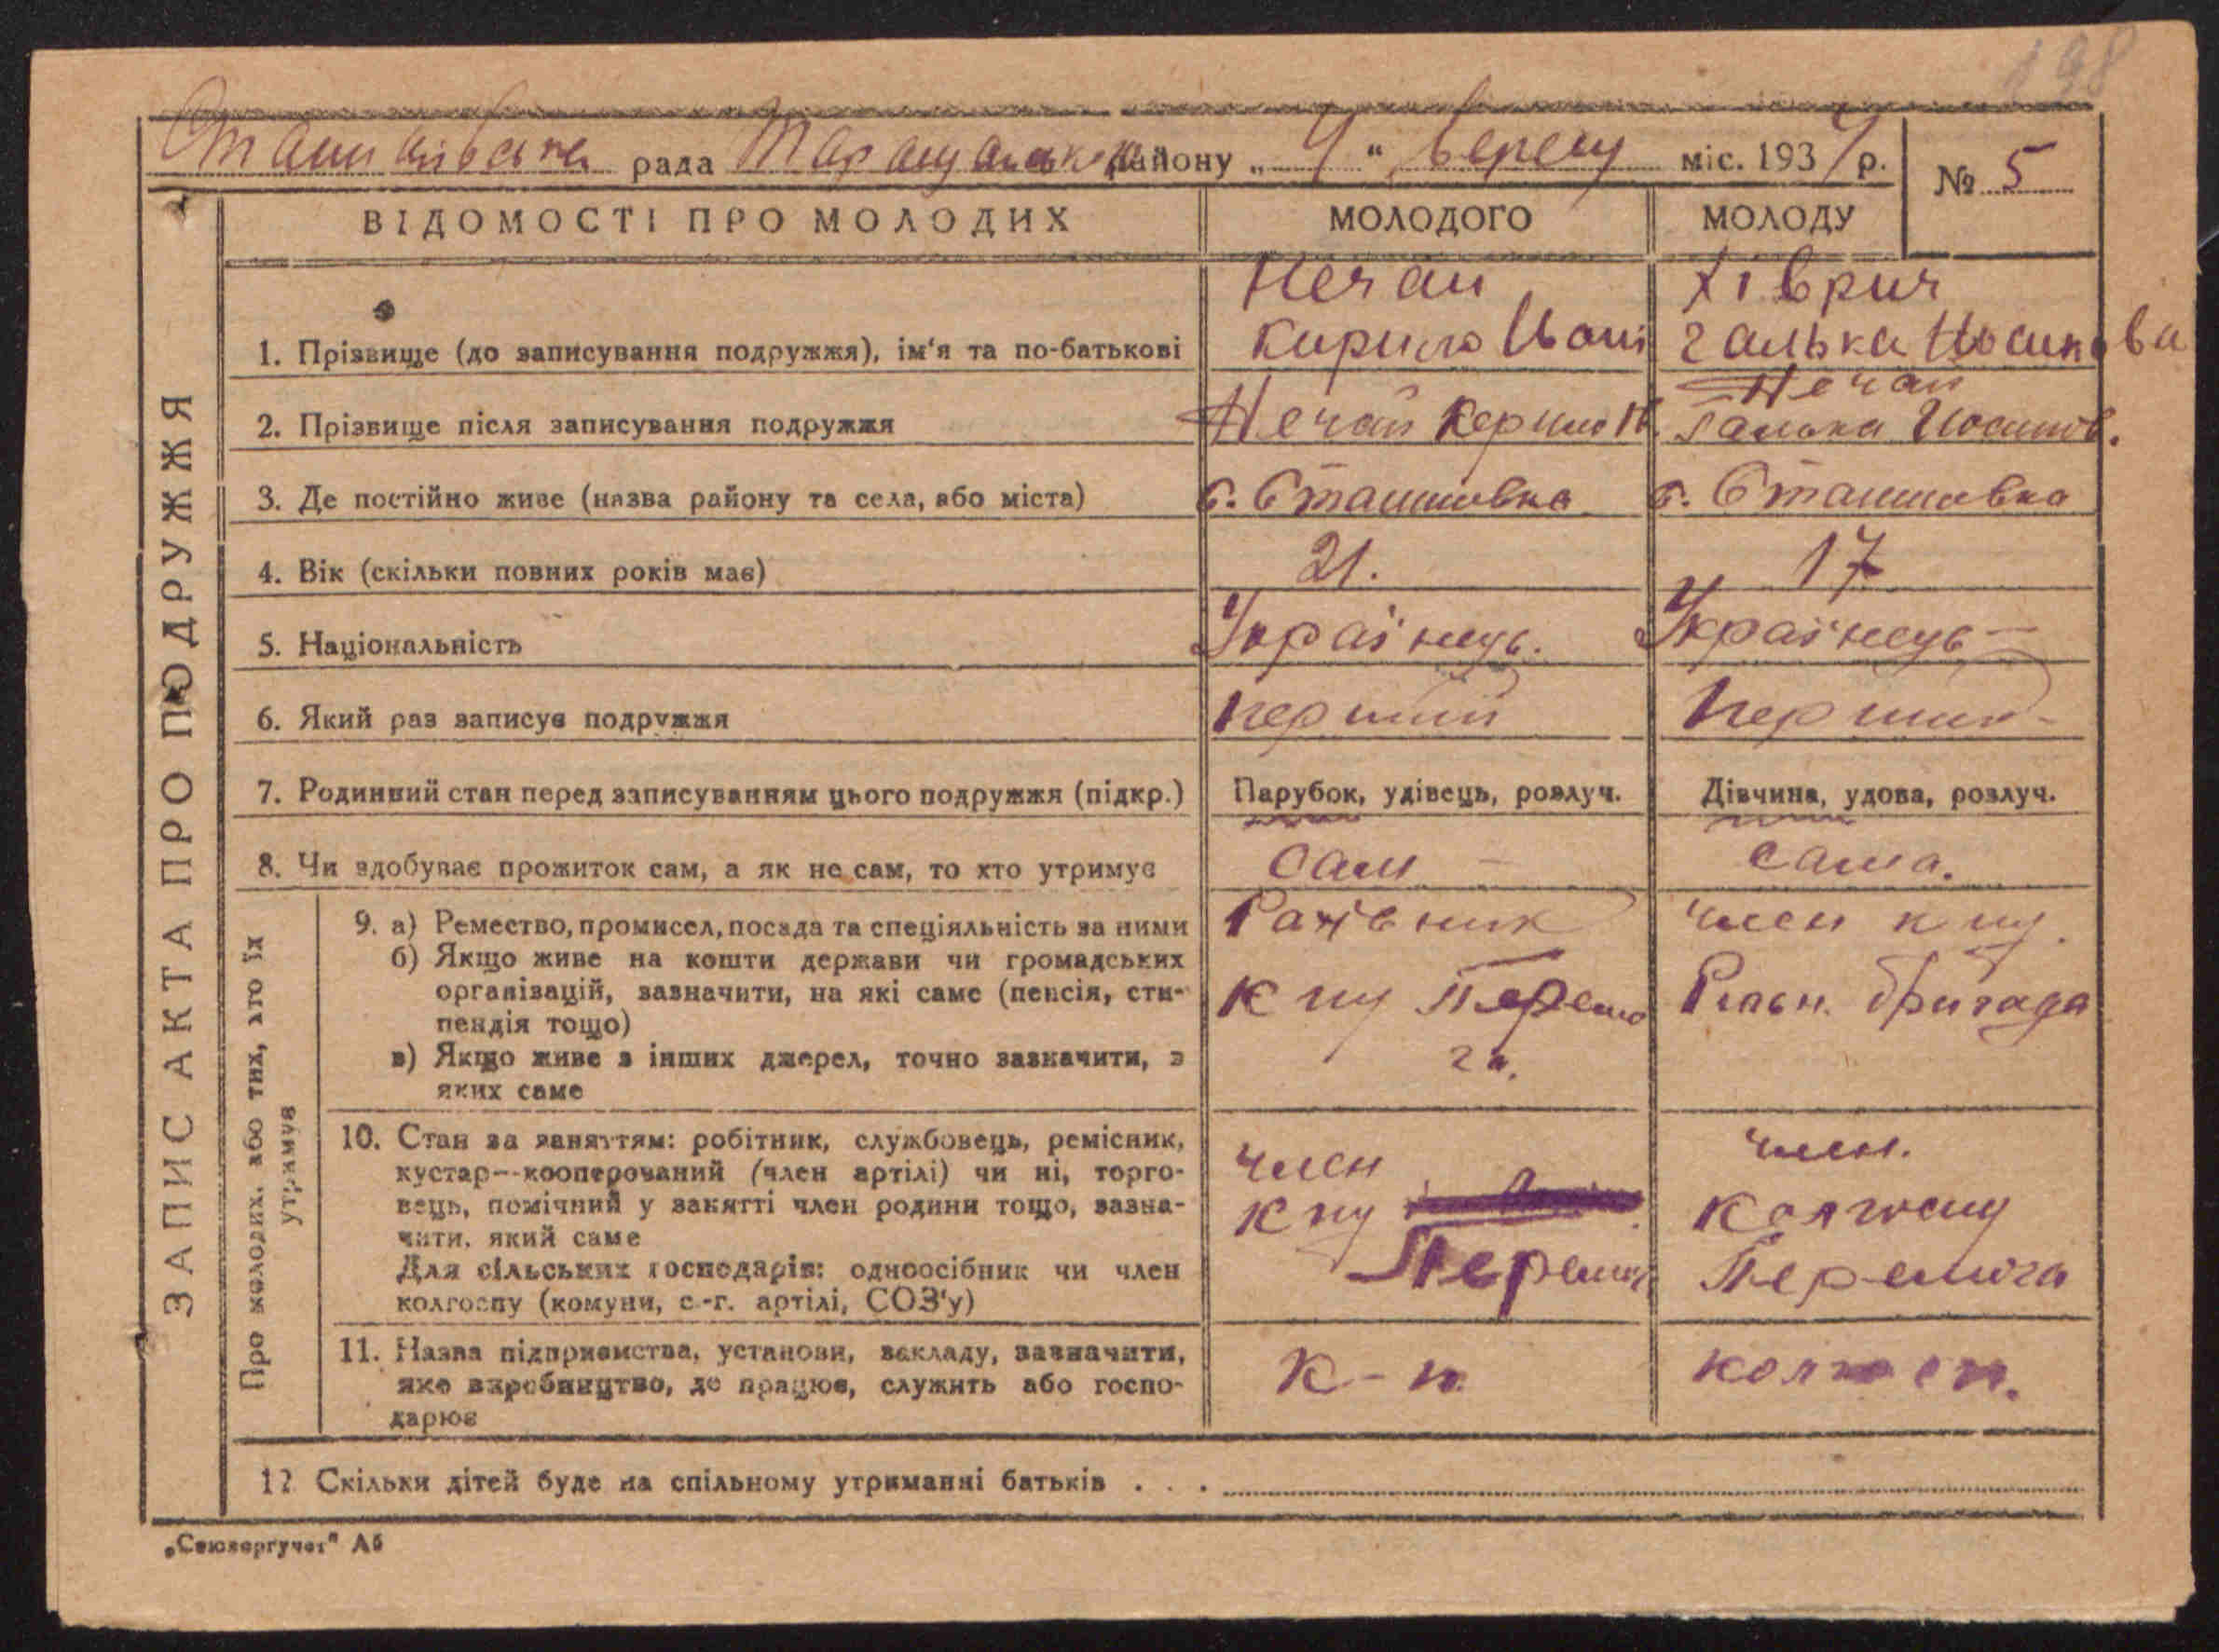 198
Сташківська рада Таращанського району „4“ вересн міс. 193 р. № 5
ВІДОМОСТІ ПРО МОЛОДИХ МОЛОДОГО МОЛОДУ
ЗАПИС АКТА ПРО ПОДРУЖЖЯ
Нечай Хіврич
1. Прізвище (до записування подружжя), ім‘я та по-батькові Кирило Галька
Нечай
2. Прізвище після записування подружжя Нечай Керило Галька Йосипов.
3. Де постійно живе (назва району та села, або міста) с. Сташковка с. Сташковка
4. Вік (скільки повних років має) 21. 17
5. Національність Українець. Українець
6. Який раз записує подружжя перший перший
7. Родинний стан перед записуванням цього подружжя (підкр.) Парубок, удівець, розлуч. Дівчина, удова, розлуч.
8. Чи здобуває прожиток сам, а як не сам, то хто утримує сам сама.
Про молодих, або тих, хто їх утримує
9. а) Ремество, промисел, посада та спеціяльність за ними Рахівник член к пу.
б) Якщо живе на кошти держави чи громадських
організацій, зазначити, на які саме (пенсія, сти- к пу Перемо Рільн. бригада
пендія тощо)
в) Якщо живе з інших джерел, точно зазначити, з га.
яких саме
10. Стан за заняттям: робітник, службовець, ремісник, член член.
кустар--кооперований (член артілі) чи ні, торго-
вець, помічний у занятті член родини тощо, зазна- к пу колгоспу
чити, який саме
Для сільських господарів: одноосібник чи член Перемог Перемога
колгоспу (комуни, с.-г. артілі, СОЗ‘у)
11. Назва підприємства, установи, закладу, зазначити,
яке виробництво, де працює, служить або госпо- к-п колгосп.
дарює
12 Скільки дітей буде на спільному утриманні батьків . . .
„Союзоргучет“ А5